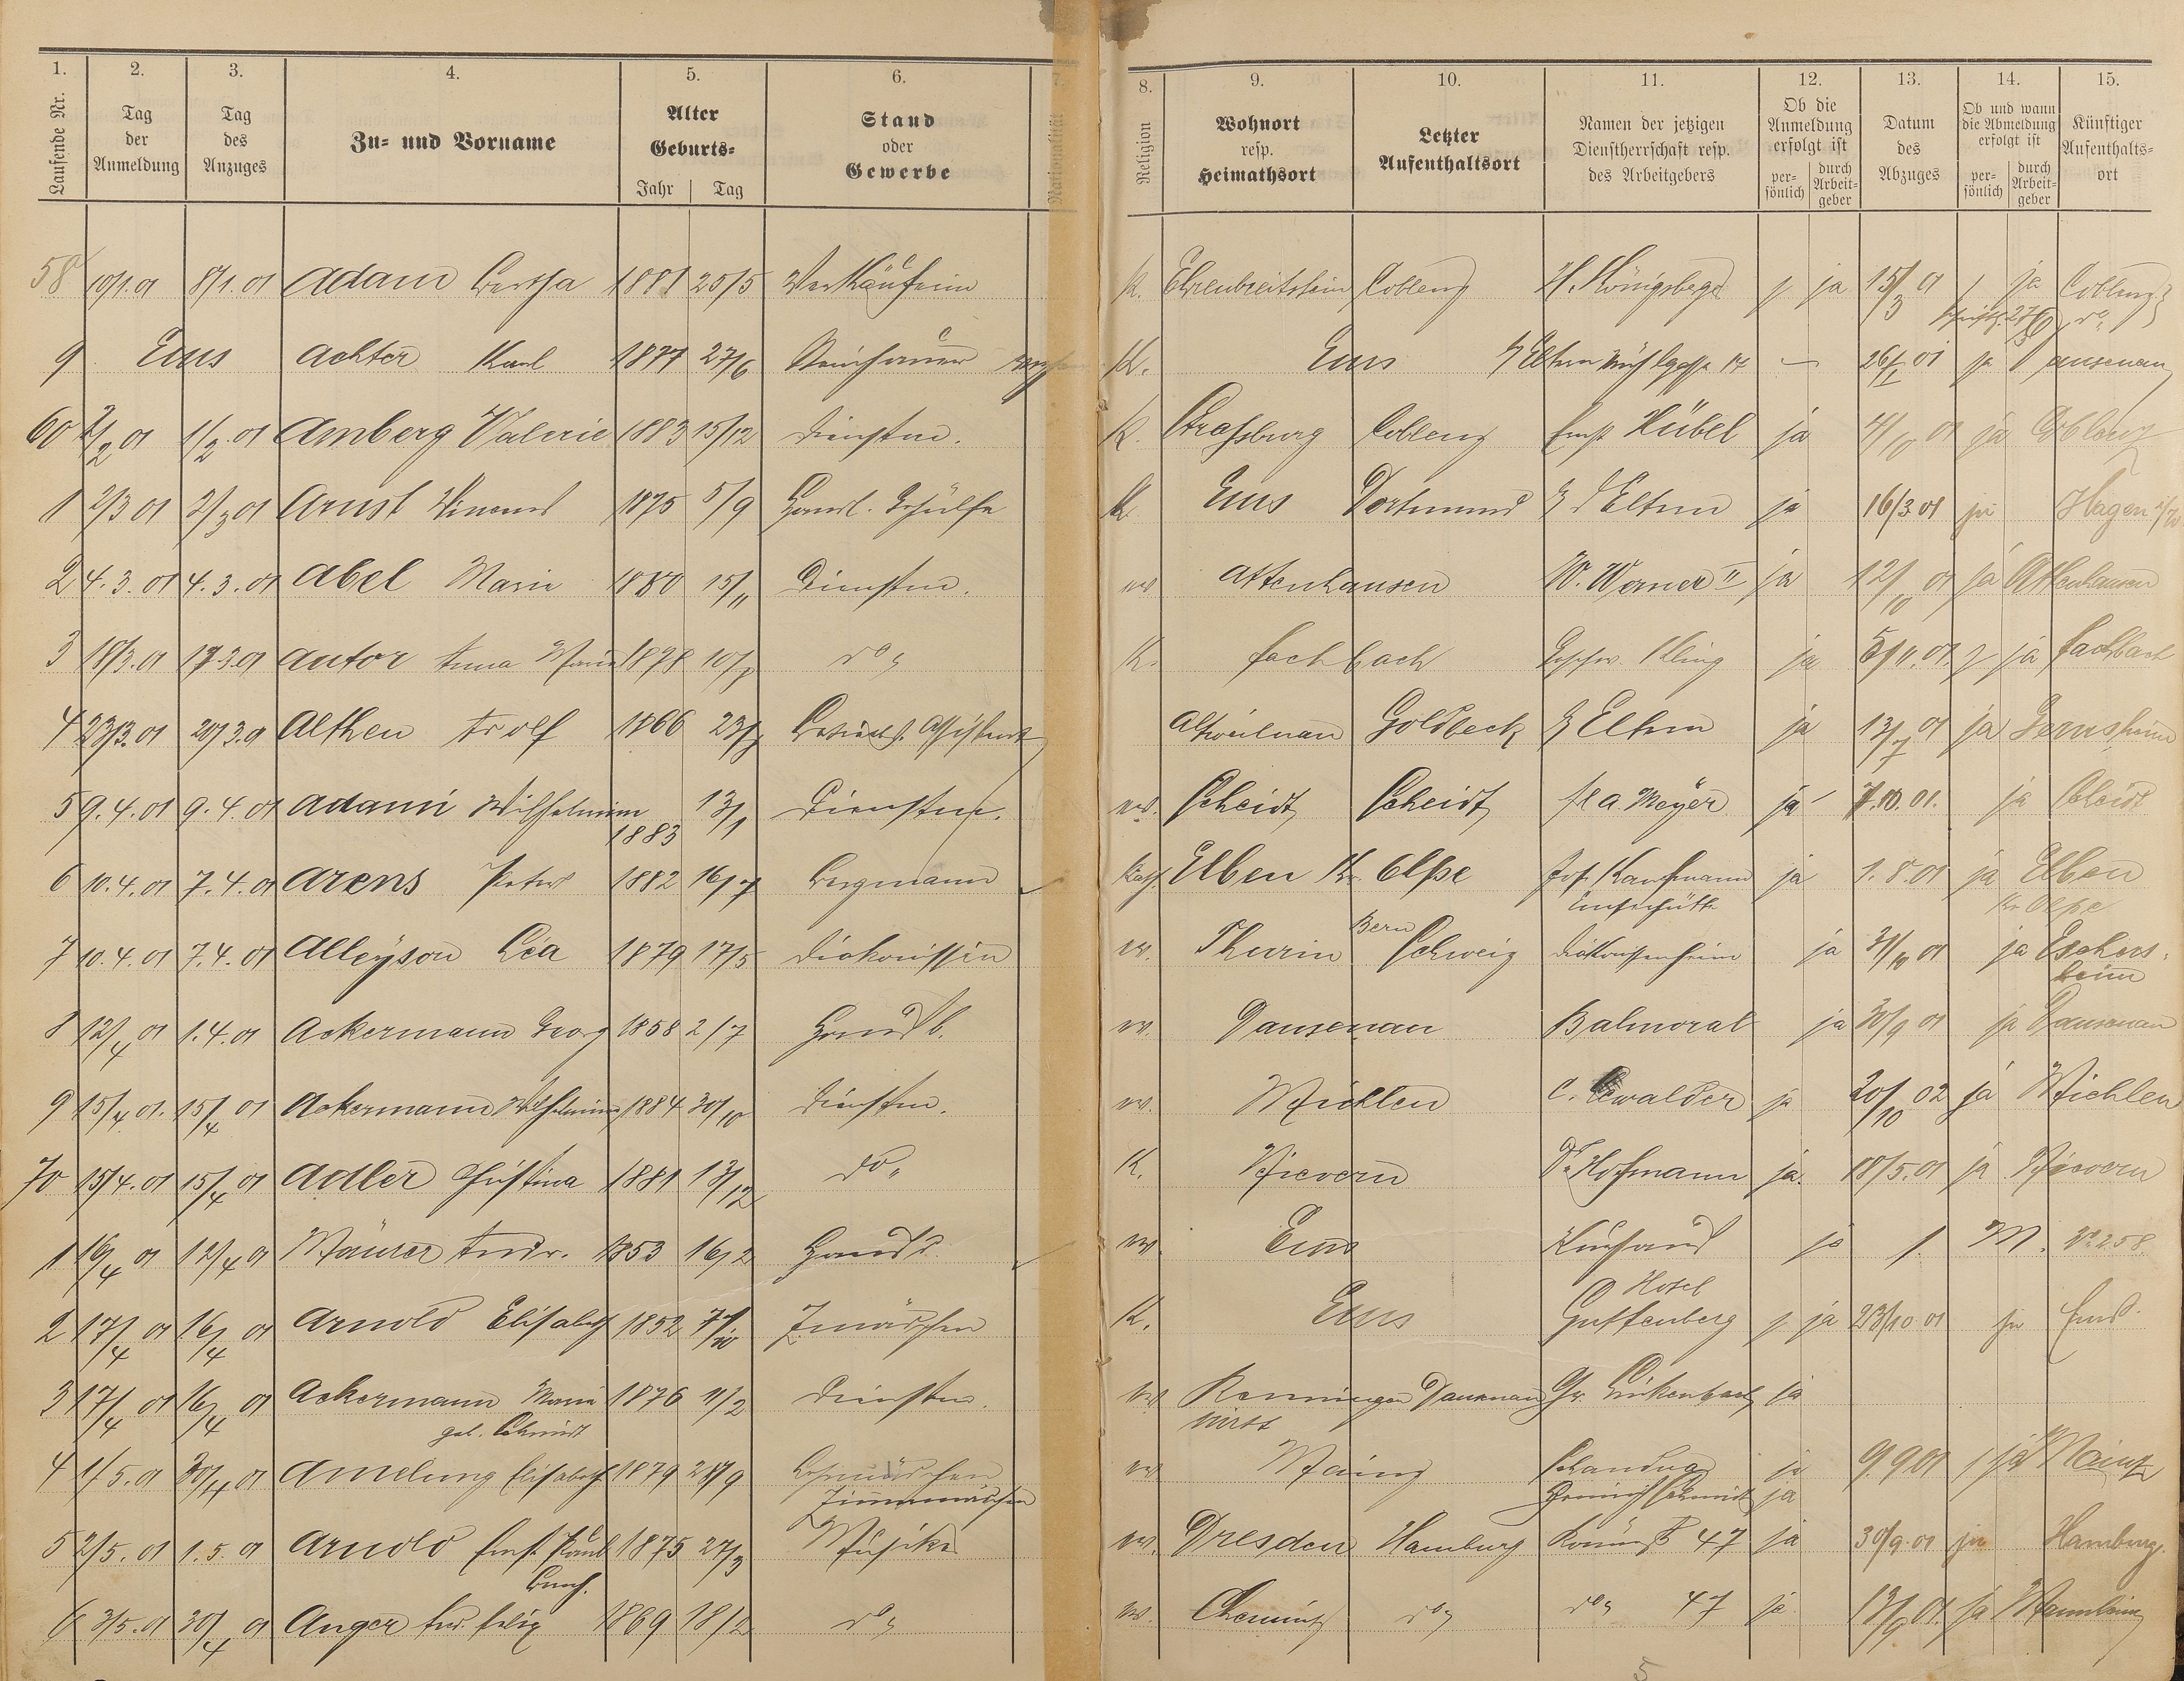 1. 2. 3. 4. 5. 6. 7. 8. 9. 10. 11. 12. 13. 14. 15.
Laufende Nr. Tag der Anmeldung Tag des Anzuges Zu- und Vorname Alter Geburts- Jahr Tag Stand oder Gewerbe Nationalität Religion Wohnort resp. Heimathsort Letzter Aufenthaltsort Namen der jetzigen Dienstherrschaft resp. des Arbeitgebers Ob die Anmeldung erfolgt ist persönlich durch Arbeitgeber Datum des Abzuges Ob und wann die Abmeldung erfolgt ist persönlich durch Arbeitgeber Künftiger Aufenthaltsort
58 10/1.01 8/1.01 Adam Bertha 1881 25/5 Verkäuferin K. Ehrenbreitstein Coblenz H. Königsberger ja 15/3 01 ja Coblenz
9 Ems Achter Karl 1877 27/6 K. Ems Eltern 17 — 26/1 01 ja Dausenau
60 2/2 01 1/2.01 Amberg Valerie 1883 15/12 Dienstm. K. Strassburg Coblenz Ernst Hübel ja 4/10 01 ja Coblenz
1 2/3 01 2/3 01 Arnst 1875 5/9 Handl. Gehülfe K. Ems Dortmund Eltern ja 16/3 01 ja Hagen i/W
2 4.3.01 4.3.01 Abel Marie 1880 15/11 Dienstm. ev Attenhausen W. Werner II ja 12/10 01 ja Attenhausen
3 18/3.01 17.3.01 Autor Anna Maria 1878 do K. Fachbach Geschw. Kling ja 5/11.01 ja Fachbach
4 23/3.01 20/3.01 Althen Adolf 1866 Assistent Altweilnau Goldbeck Eltern ja 13/7 01 ja Gernsheim
5 9.4.01 9.4.01 Adami Wilhelmine 1883 13/1 Dienstm. ev. Scheidt Scheidt A. Meyer ja 7.10.01. ja Scheidt
6 10.4.01 7.4.01 Arens Peter 1882 16/7 Bergmann Kath. Elben Kr. Olpe Jos. Kaufmann Emserhütte ja 1.8.01 ja Elben Kr. Olpe
7 10.4.01 7.4.01 Alleyson Léa 1879 17/5 Diakonissin ev. Thurin Bern Schweiz Diakonissenheim ja 31/10 01 ja Eschersheim
8 12/4 01 1.4.01 Ackermann Georg 1858 2/7 Hausb. ev. Dausenau Balmoral ja 30/9 01 ja Dausenau
9 15/4 01. 15/4 01 Ackermann Wilhelmine 1884 30/10 Dienstm. ev. Miehlen C. Ewalder ja 20/10 02 ja Miehlen
70 15/4.01 15/4 01 Adler Christina 1881 13/12 do K. Nievern Dr. Hofmann ja. 18/5.01 ja Nievern
1 16/4 01 12/4 01 Mäurer Andr. 1853 16/2 Hausd. ev Ems Kurhaus ja M. No 258
2 17/4 01 16/4 01 Arnold Elisabeth 1852 7/10 Zmädchen K. Ems Hotel Guttenberg ja 23/10.01 ja Ems
3 17/4 01 16/4 01 Ackermann Maria geb. Schmidt 1876 11/2 Dienstm. ev Dausenau ja
4 1/5.01 30/4 01 Amelung Elisabeth 1879 28/9 Zimmermädchen ev Mainz Schandua Heinrich Schmidt ja ja 9.9.01 ja Mainz
5 2/5.01 1.5.01 Arnold Ernst Paul Bernh. 1875 27/3 Musiker ev. Dresden Hamburg Römerstr 47 ja 30/9.01 ja Hamburg.
6 3/5.01 30/4 01 Anger Felix 1869 18/2 do ev. Chemnitz do do 47 ja 13/9 01. ja Mannheim
5